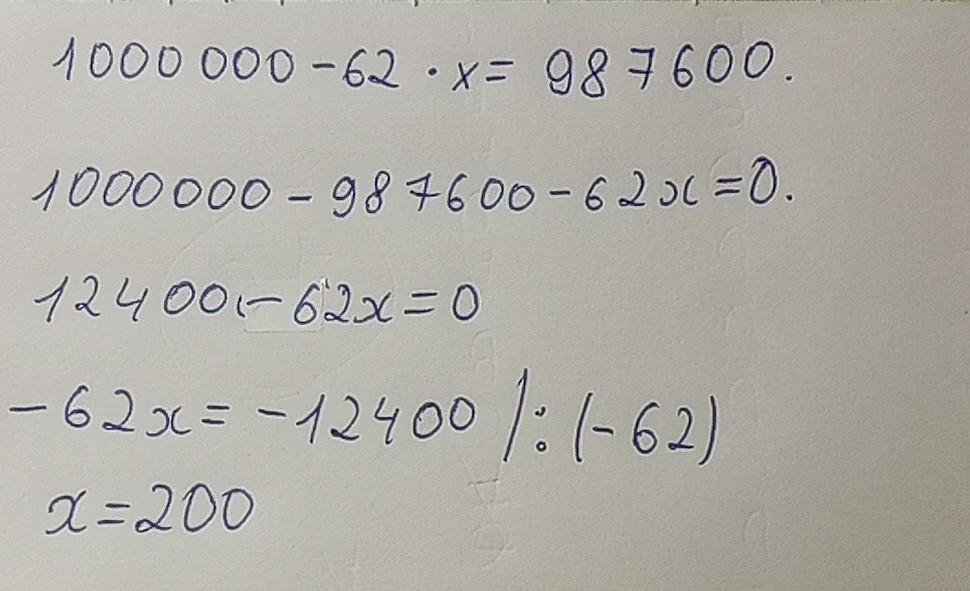 1000 000 - 62 · x = 987600.
1000000 - 987600 - 62x = 0.
12400 - 62x = 0
-62x = -12400 /: (-62)
x = 200